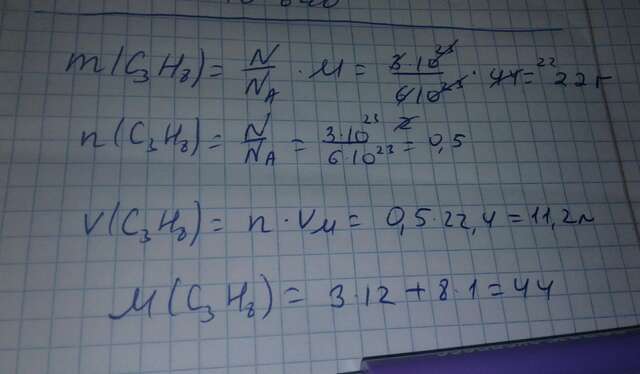 m(C₃H₈) = N/Nₐ · M = 3·10²³/6·10²³ · 44 = 22г
n(C₃H₈) = N/Nₐ = 3·10²³/6·10²³ = 0,5
V(C₃H₈) = n · Vм = 0,5·22,4 = 11,2л
M(C₃H₈) = 3·12 + 8·1 = 44